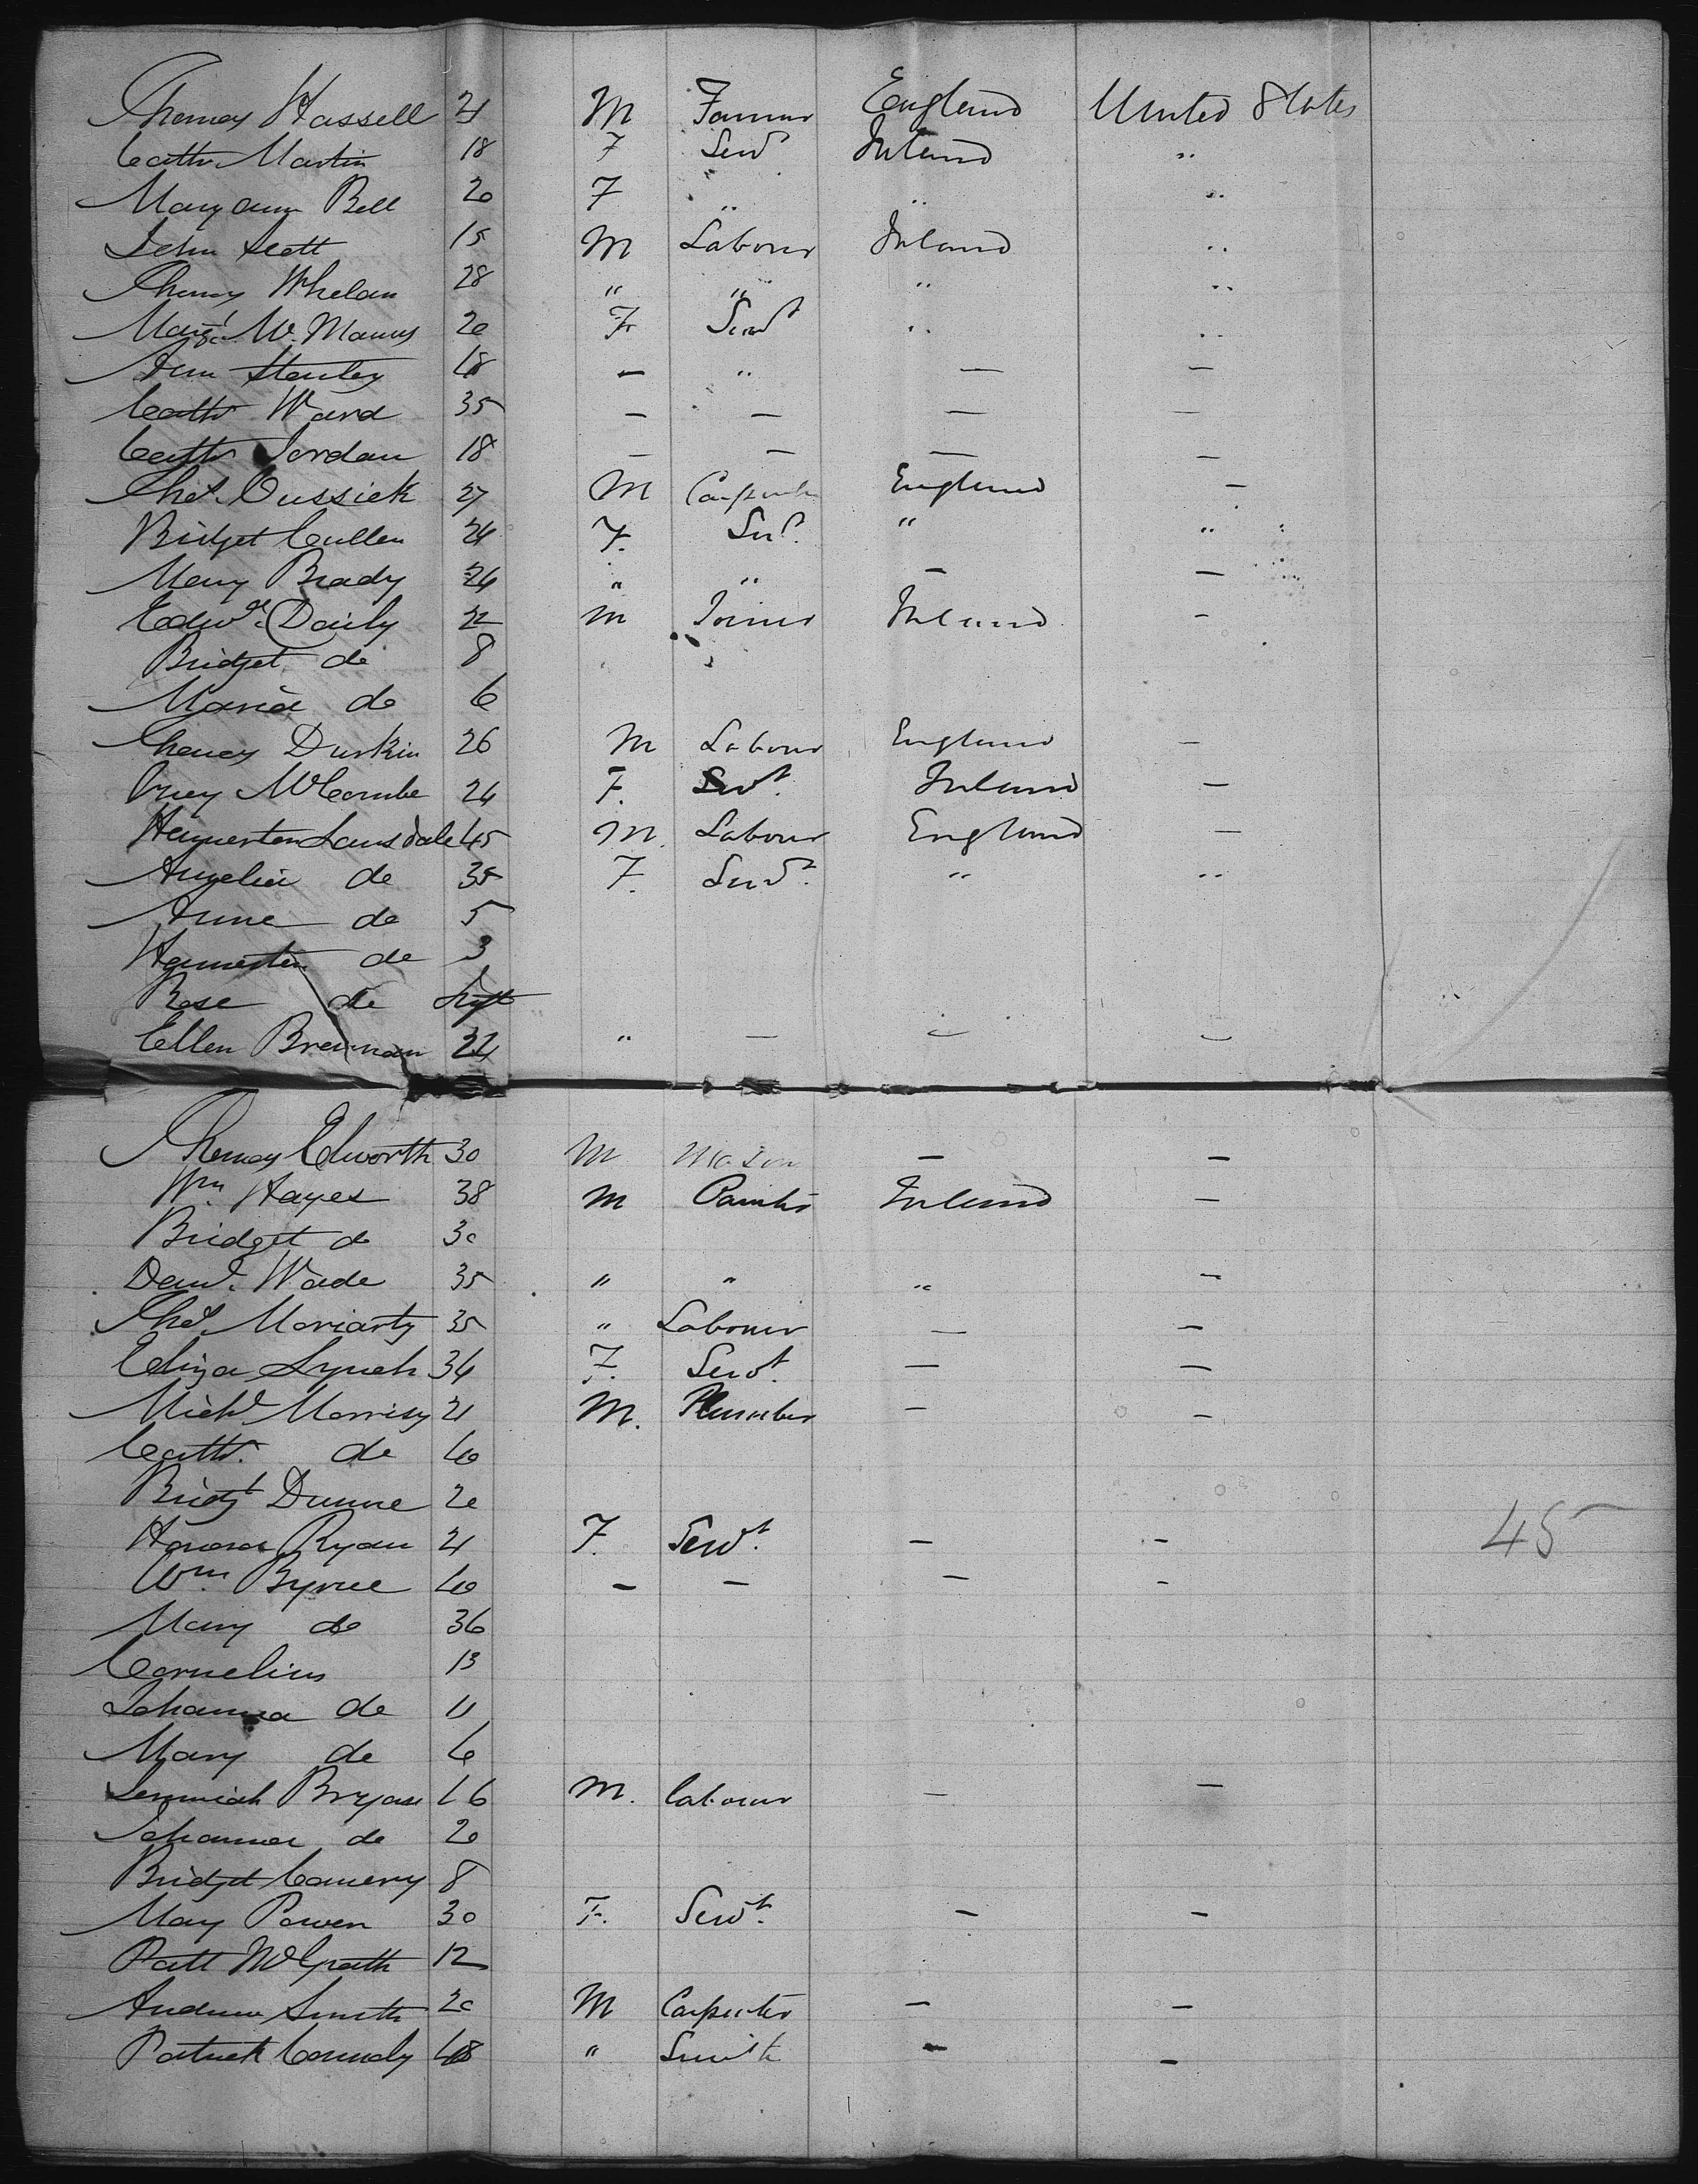 Thomas Hassell 21 M Farmer England United States
Cathr Martin 18 F Servt Ireland "
Mary ann Bell 20 F " " "
John Scott 15 M Labourer Ireland "
Thomas Whelan 28 " " " "
Margt McManus 20 F Servt " "
Ann Stanley 18 — " — —
Cathr Ward 35 — — — —
Cathr Jordan 18 — — — —
Thos Cussick 27 M Carpenter England —
Bridget Cullen 24 F. Sert. " "
Mary Brady 24 " " — —
Edwd. Daily 22 M Joiner Ireland —
Bridget do 8
Maria do 6
Thomas Durkin 26 M Labourer England —
McCombe 24 F. Servt. Ireland —
Lansdale 45 M. Labourer England —
Angelia do 35 F. Servt. " "
Anne do 5
do 3
Rose do Inft
Ellen Brennan 22 " — — —
Thomas Edworth 30 M Mason — —
Wm Hayes 38 M Painter Ireland —
Bridget do 30
Danl. Wade 35 " " " —
Thos. Moriarty 35 " Labourer — —
Eliza Lynch 34 F. Servt. — —
Michl Morrisy 21 M. Plumber — —
Cathr. do 40
Bridgt Dunne 20
Honora Ryan 21 F. Servt. — — 45
Wm. Byrne 40 — — — —
Mary do 36
Cornelius 13
Johanna do 11
Mary do 6
Jeremiah 16 M. Labourer — —
Johanna do 20
Bridget 8
Mary Power 30 F. Servt. — —
Patt McGrath 12
Andrew Smith 20 M Carpenter — —
Patrick Connoly 48 " Smith — —